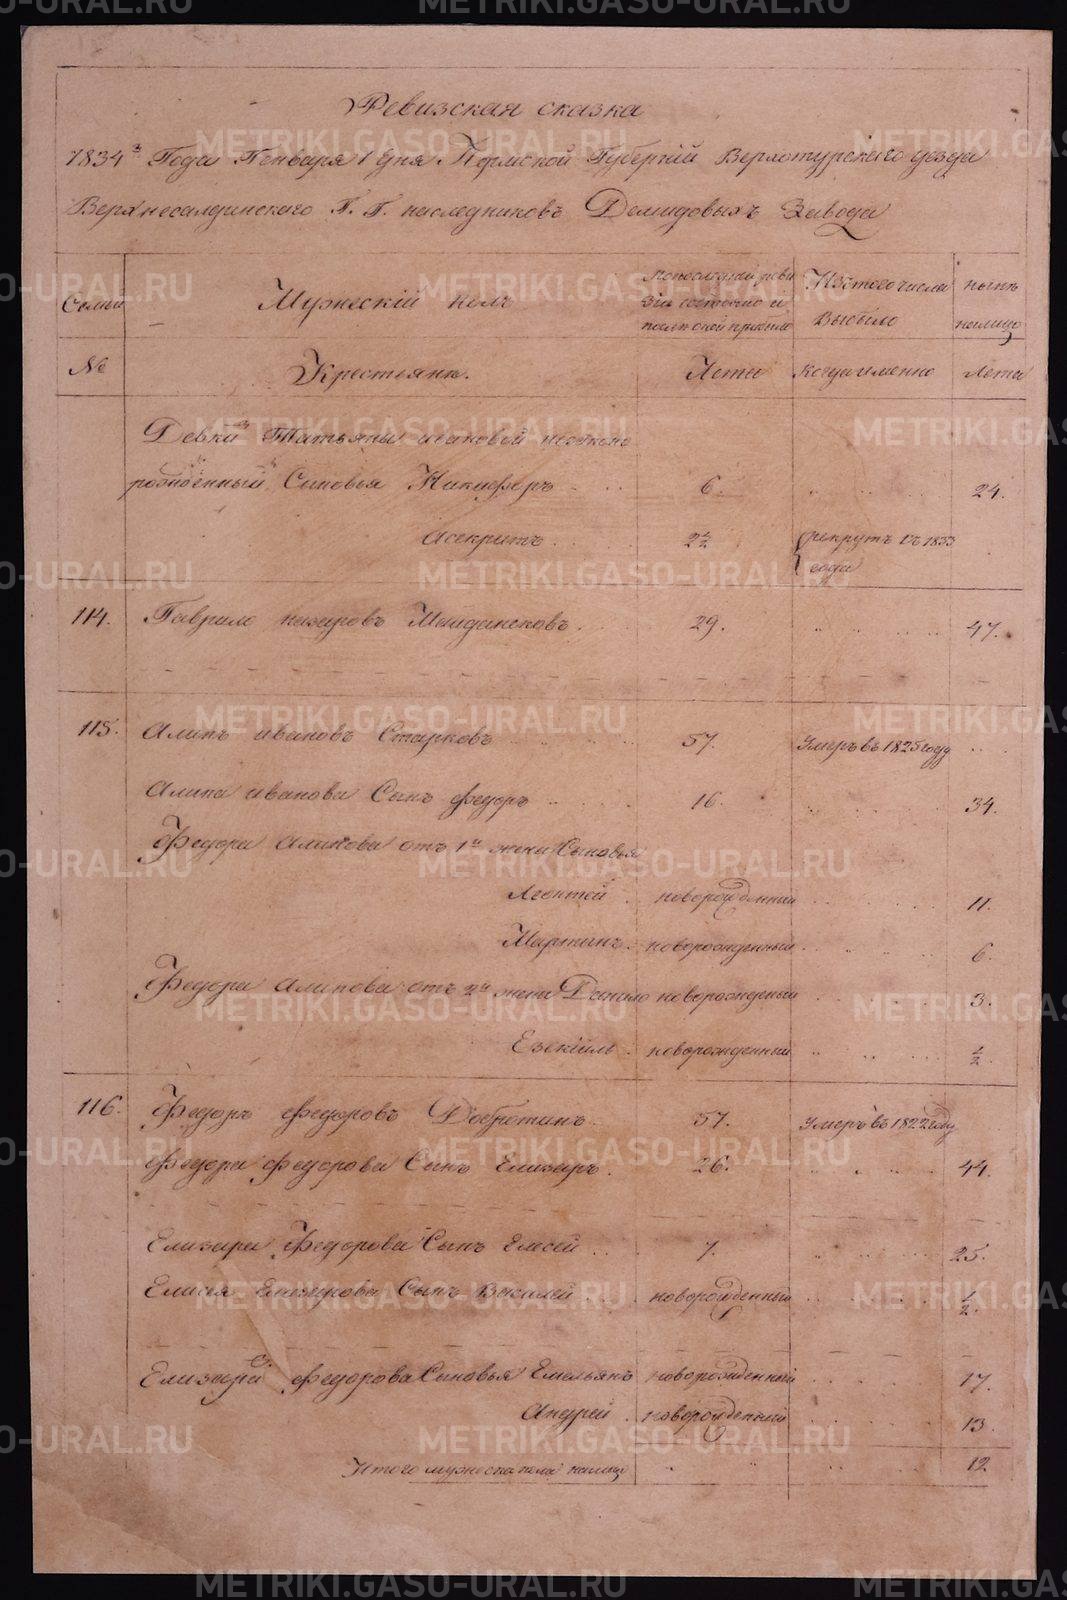 Ревизская сказка
1834го Года Генваря 1 дня Пермской Губернии Верхотурского уезда
Верхнесалдинского Г. Г. наследниковъ Демидовыхъ Завода
Семьи
Мужеский полъ
По последней реви
зiи состояло и
после оной прибыло
Изтого числа
Выбыло
ныне
налицо
№
Крестьяне.
Лета
когда именно
Лета
Девки Татьяны
рожденный Сыновья Никифоръ 6. 24.
Асекритъ 2½ рекрутъ въ 1833
года
114. Гаврило назаровъ Майданековъ. 29. 47.
115. Алипъ ивановъ Старковъ 57. Умеръ въ 1825 году
Алипа иванова Сынъ федоръ 16. 34.
Федора Алипова отъ 1й жены Сыновья
Леонтей новорожденный 11.
Мартинъ. новорожденный 6.
Федора Алипова отъ 2й жены Данило новорожденый 3.
Езекiиль. новорожденный ½.
116. Федоръ федоровъ Добротинъ. 57. Умеръ въ 1822 году
Федора федорова Сынъ Елизаръ. 26. 44.
Елизара Федорова Сынъ Елесей 7. 25.
Елисея Елизарова Сынъ Васалей новорожденный ½.
Елизара федорова Сыновья Емельянъ новорожденный 17.
Андрей. новорожденный 13.
Итого мужеска пола налицо 12
METRIKI.GASO-URAL.RU